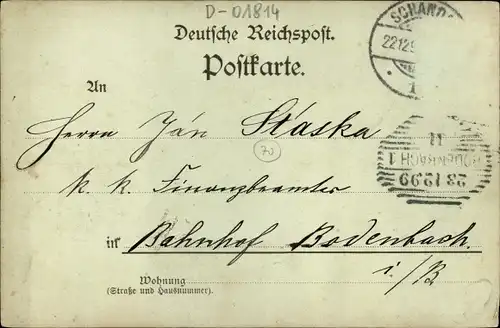 D-01814
Deutsche Reichspost.
Postkarte.
SCHANDAU
22 12 9
An
Herrn Ján Staska
70
k. k. Finanzbeamter
11
23.12.99
in Bahnhof Bodenbach.
i/B
Wohnung
(Straße und Hausnummer).